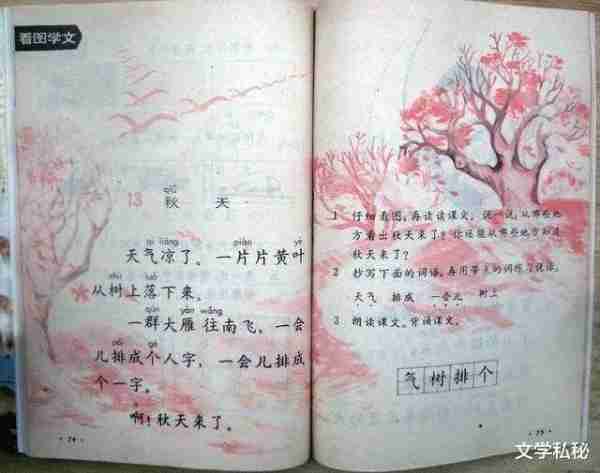 看图学文
qiū
13 秋 天
qì liáng piàn yè
天气凉了。一片片黄叶
shù luò
从树上落下来。
qún yàn wǎng
一群大雁往南飞，一会
pái gè
儿排成个人字，一会儿排成
个一字。
啊！秋天来了。
·74·
1 仔细看图，再读读课文，说一说，从哪些地
方看出秋天来了？你还能从哪些地方知道
秋天来了？
2 抄写下面的词语，再用带点的词练习说话。
天气 排成 一会儿 树上
3 朗读课文。背诵课文。
气树排个
·75·
文学私秘